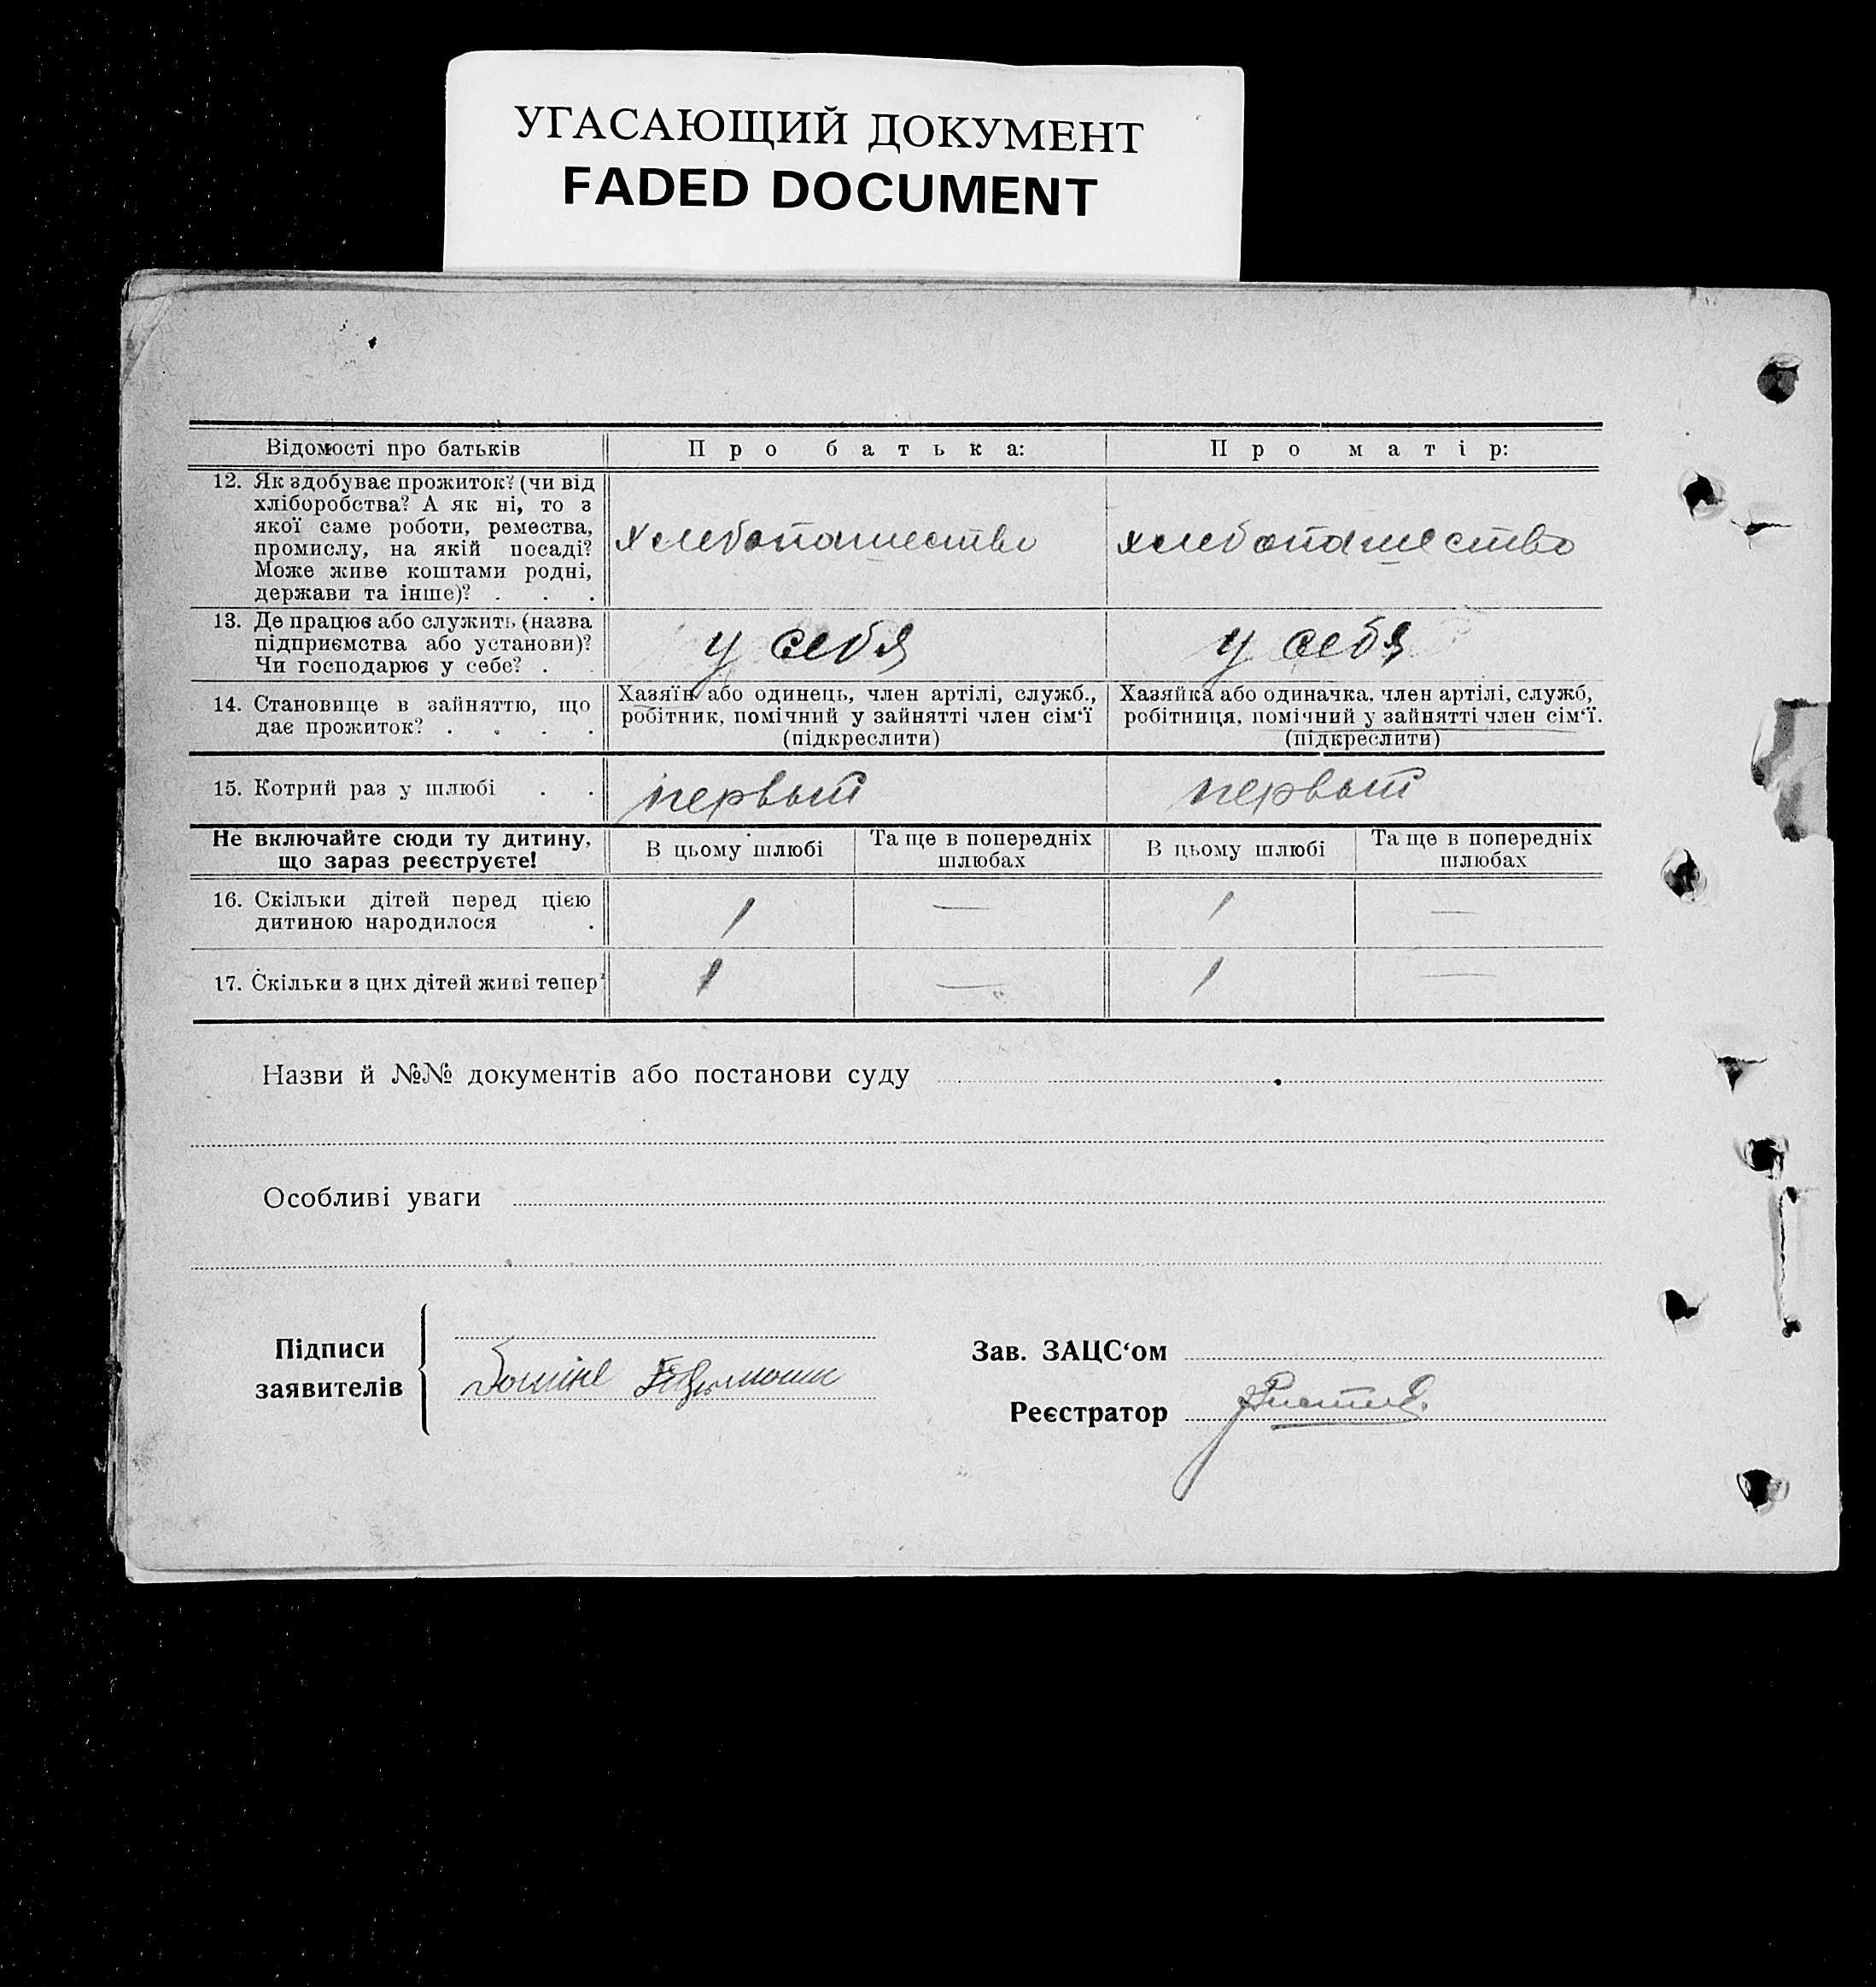 УГАСАЮЩИЙ ДОКУМЕНТ
FADED DOCUMENT
Відомості про батьків
Про батька:
Про матір:
12. Як здобуває прожиток? (чи від
хліборобства? А як ні, то з
якої саме роботи, ремества,
промислу, на якій посаді?
Може живе коштами родні,
держави та інше)? . . .
хлебопашество
хлебопашество
13. Де працює або служить (назва
підприємства або установи)?
Чи господарює у себе? . .
у себя
у себя
14. Становище в зайняттю, що
дає прожиток? . . . .
Хазяїн або одинець, член артілі, служб.,
робітник, помічний у зайнятті член сім'ї
(підкреслити)
Хазяйка або одиначка, член артілі, служб,
робітниця, помічний у зайнятті член сім'ї.
(підкреслити)
15. Котрий раз у шлюбі . .
первый
первый
Не включайте сюди ту дитину,
що зараз реєструєте!
В цьому шлюбі
Та ще в попередніх
шлюбах
В цьому шлюбі
Та ще в попередніх
шлюбах
16. Скільки дітей перед цією
дитиною народилося .
1
—
1
—
17. Скільки з цих дітей живі тепер?
1
—
1
—
Назви й №№ документів або постанови суду
Особливі уваги
Підписи
заявителів
Зав. ЗАЦС'ом
Реєстратор